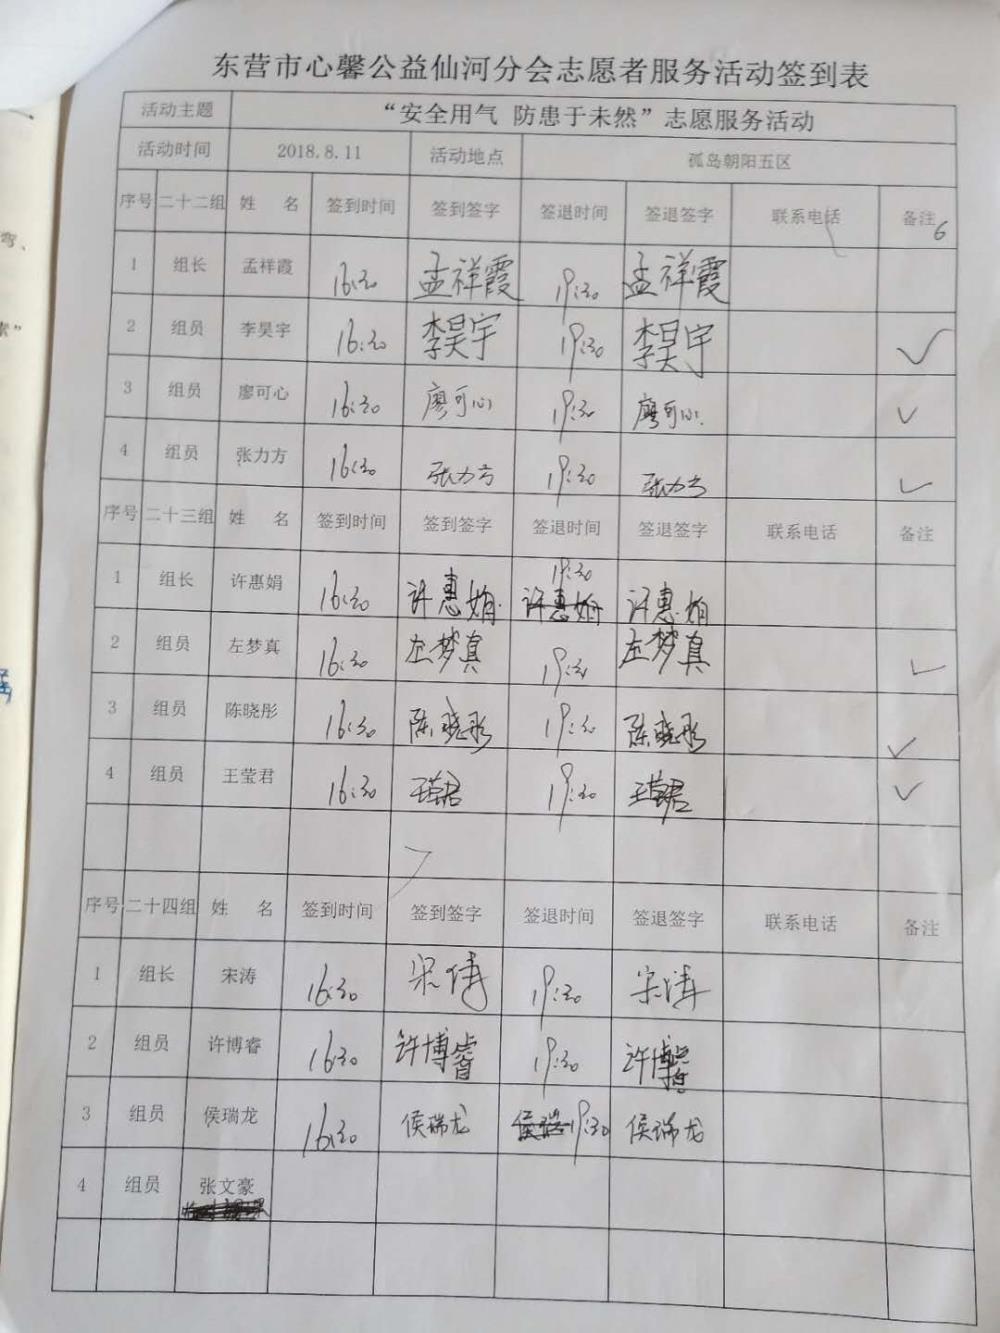 东营市心馨公益仙河分会志愿者服务活动签到表
活动主题 “安全用气 防患于未然”志愿服务活动
活动时间 2018.8.11 活动地点 孤岛朝阳五区
序号 二十二组 姓 名 签到时间 签到签字 签退时间 签退签字 联系电话 备注 6
1 组长 孟祥霞 16:30 孟祥霞 19:30 孟祥霞
2 组员 李昊宇 16:30 李昊宇 19:30 李昊宇 ✓
3 组员 廖可心 16:30 廖可心 19:30 廖可心 ✓
4 组员 张力方 16:30 张力方 19:30 张力方 ✓
序号 二十三组 姓 名 签到时间 签到签字 签退时间 签退签字 联系电话 备注
1 组长 许惠娟 16:30 许惠娟 19:30 许惠娟 许惠娟
2 组员 左梦真 16:30 左梦真 19:30 左梦真 ✓
3 组员 陈晓彤 16:30 陈晓彤 19:30 陈晓彤 ✓
4 组员 王莹君 16:30 王莹君 19:30 王莹君 ✓
序号 二十四组 姓 名 签到时间 签到签字 签退时间 签退签字 联系电话 备注
1 组长 宋涛 16:30 宋涛 19:30 宋涛
2 组员 许博睿 16:30 许博睿 19:30 许博睿
3 组员 侯瑞龙 16:30 侯瑞龙 19:30 侯瑞龙
4 组员 张文豪